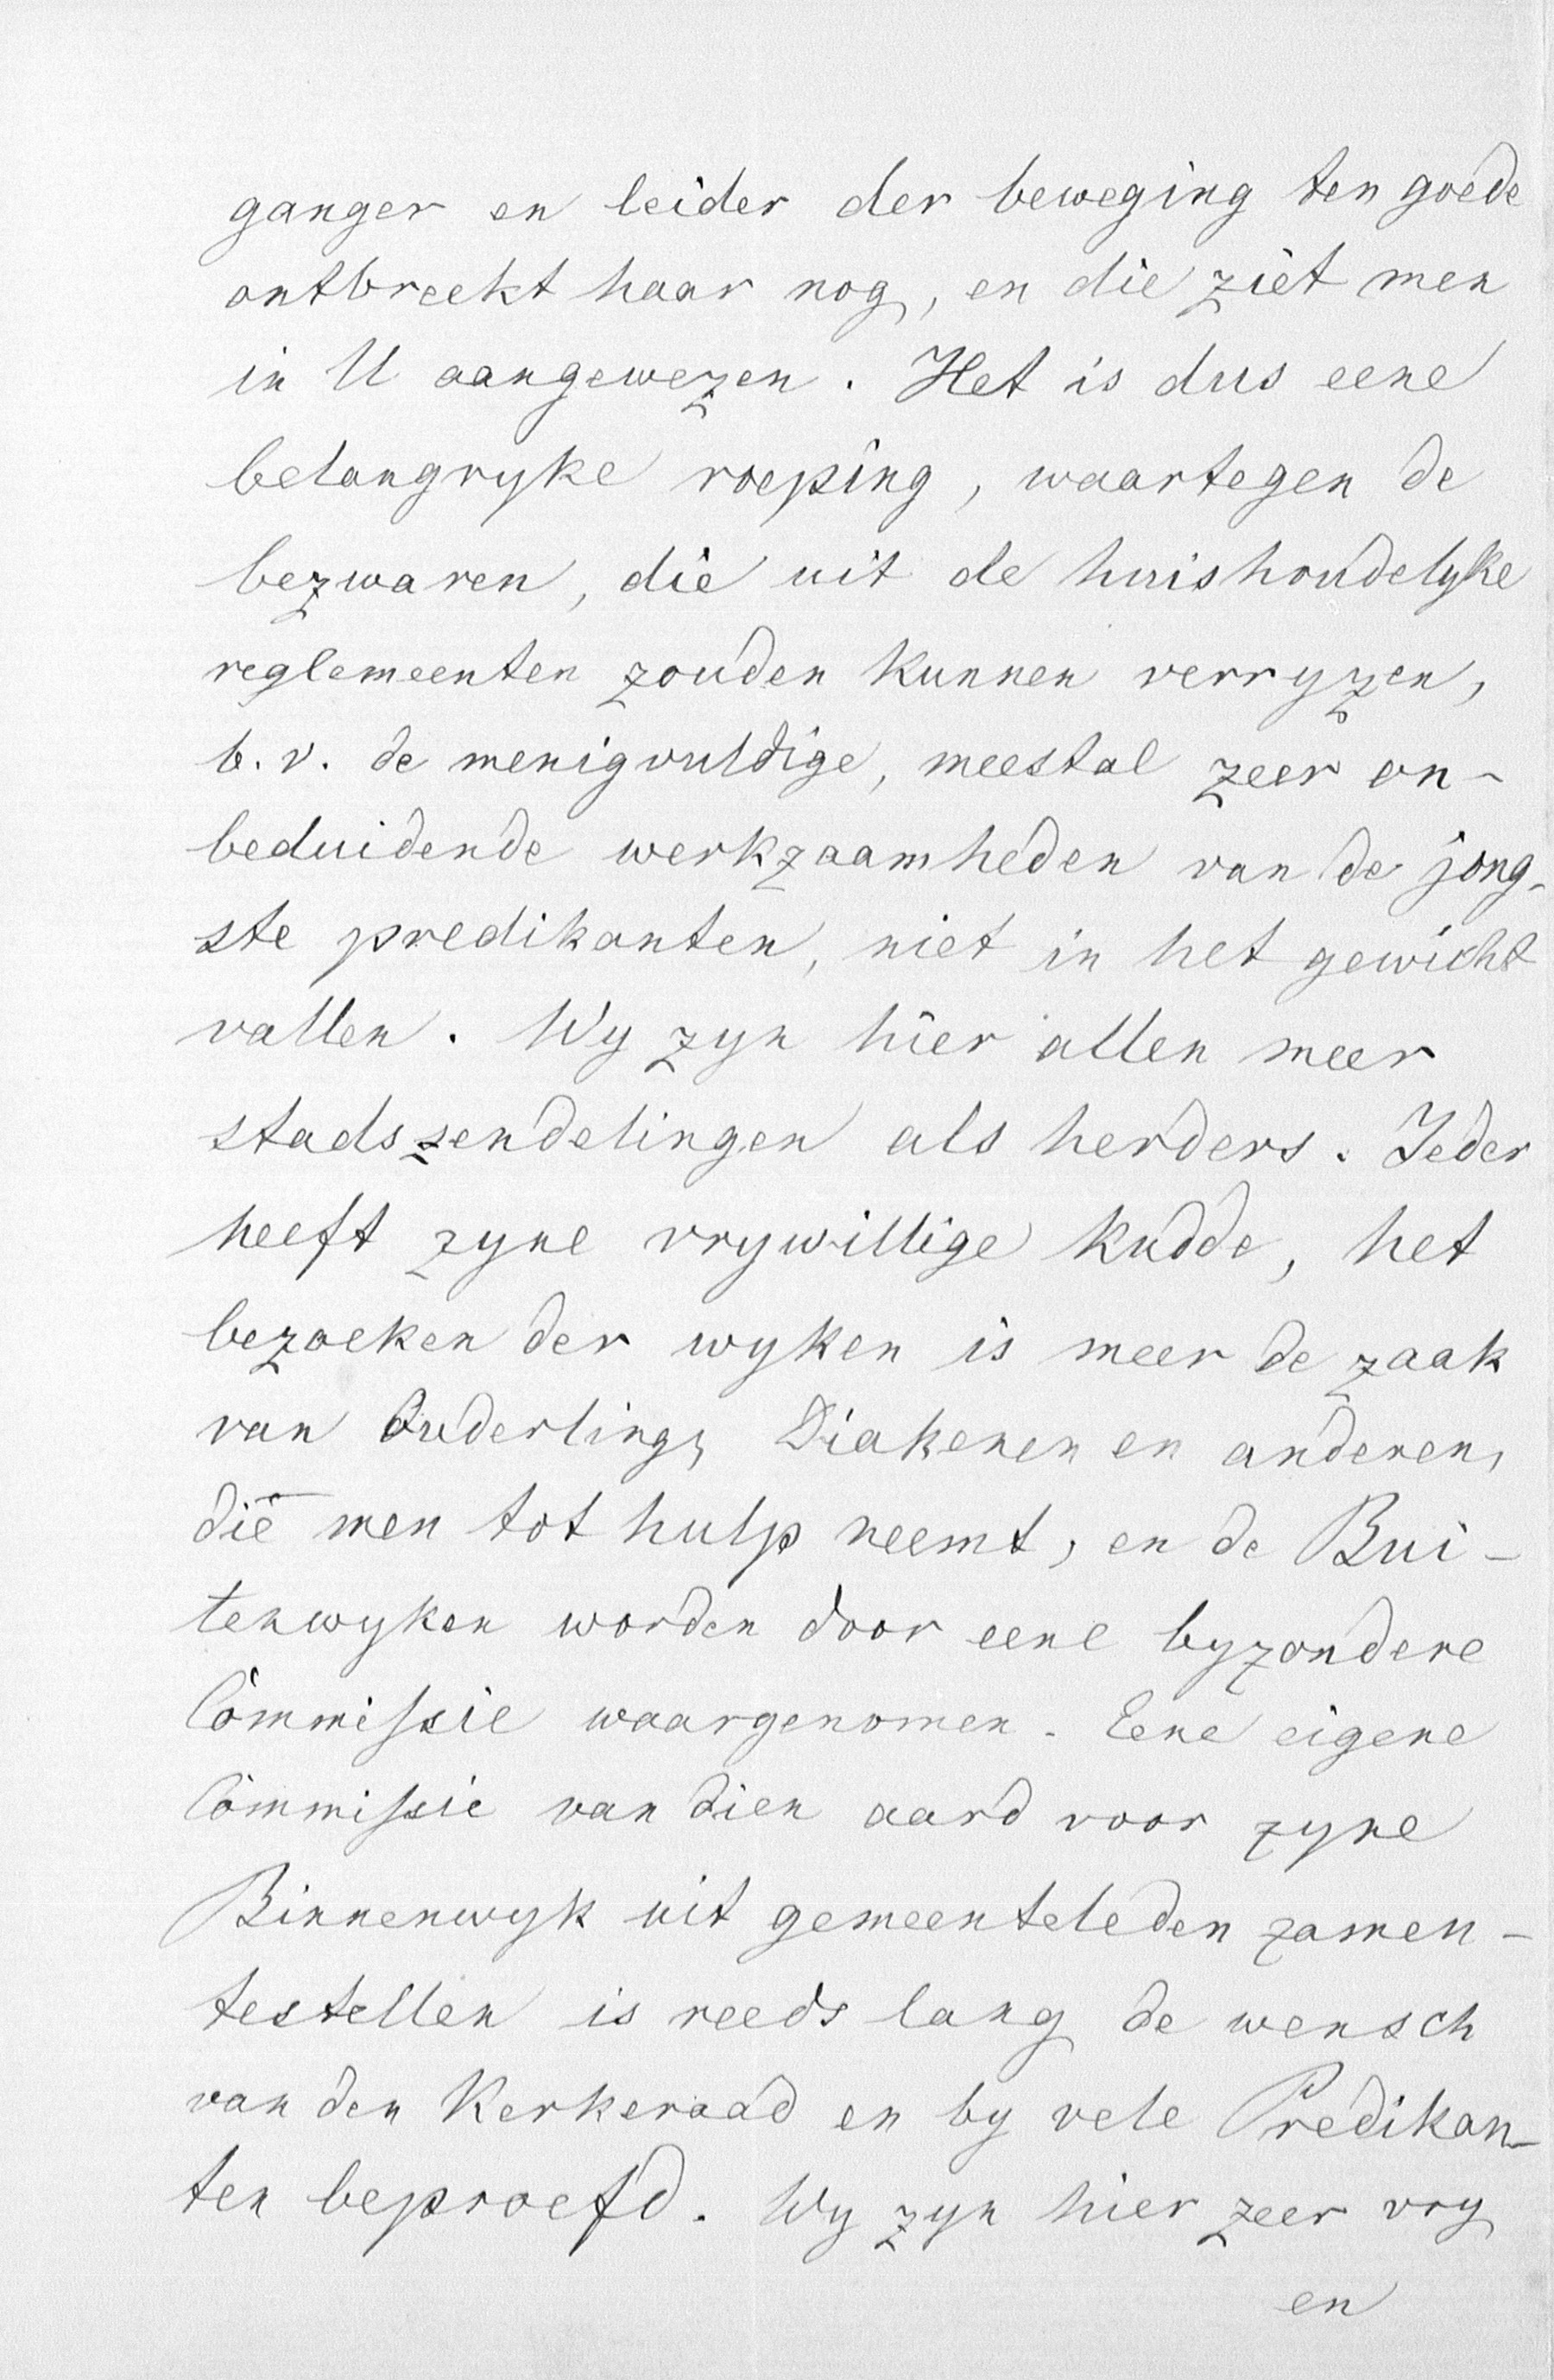 ganger en leider der beweging ten goede
ontbreekt haar nog, en die ziet men
in U aangewezen. Het is dus eene
belangryke roeping, waartegen de
bezwaren, die uit de huishoudelyke
reglemeenten zouden kunnen verryzen,
b.v. de menigvuldige, meestal zeer on-
beduidende werkzaamheden van de jong-
ste predikanten, niet in het gewicht
vallen. Wy zyn hier allen meer
stadszendelingen als herders. Ieder
heeft zyne vrywillige kudde, het
bezoeken der wyken is meer de zaak
van Ouderling, Diakenen en anderen,
die men tot hulp neemt, en de Bui-
tenwyken worden door eene byzondere
Commissie waargenomen. Eene eigene
Commissie van dien aard voor zyne
Binnenwyk uit gemeenteleden zamen-
testellen is reeds lang de wensch
van den Kerkeraad en by vele Predikan-
ten beproefd. Wy zyn hier zeer vry
en